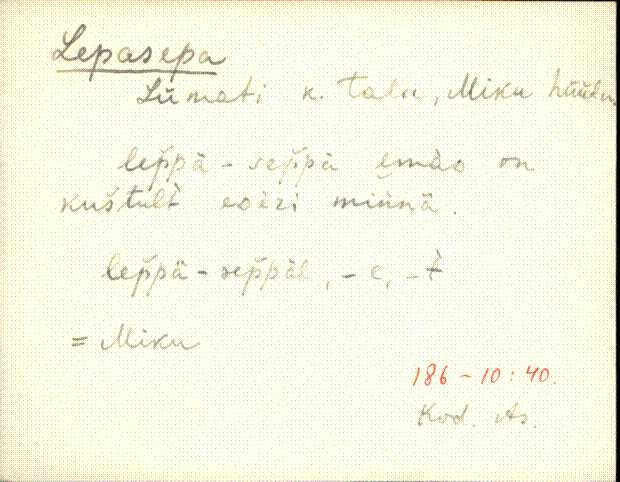 Lepasepa
Lümati k. talu, Miku hüüdn.
lep̆pä-sep̆pä emä̀o on
kuštult̀ eoèzi minnä.
lep̆pä-sep̆päl, -e, -t̀
= Miku
186-10:40.
Kod. As.